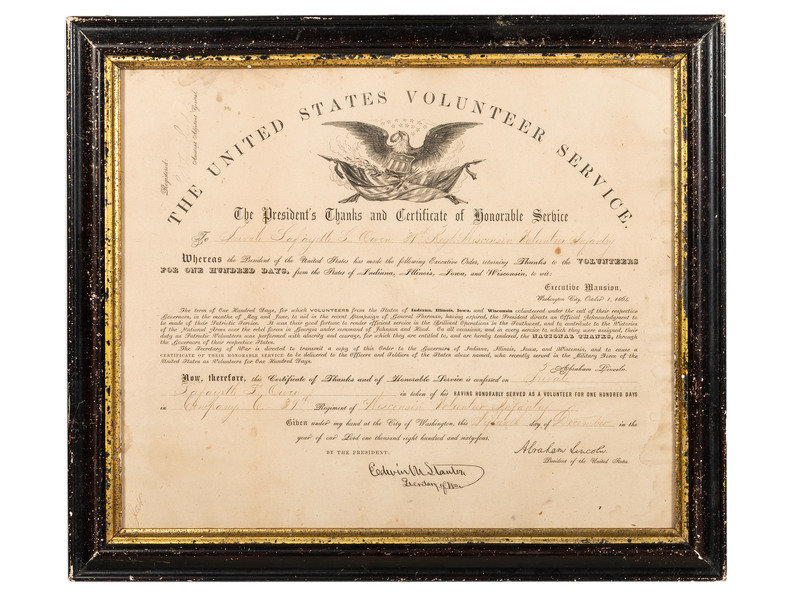 THE UNITED STATES VOLUNTEER SERVICE.
The President's Thanks and Certificate of Honorable Service
To Private Lafayette F. Owen 39th Regt Wisconsin Volunteer Infantry
Whereas the President of the United States has made the following Executive Order, returning Thanks to the VOLUNTEERS
FOR ONE HUNDRED DAYS, from the States of Indiana, Illinois, Iowa, and Wisconsin, to wit:
Executive Mansion,
Washington City, October 1, 1864.
The term of One Hundred Days, for which VOLUNTEERS from the States of Indiana, Illinois, Iowa, and Wisconsin volunteered under the call of their respective
Governors, in the months of May and June, to aid in the recent Campaign of General Sherman, having expired, the President directs an Official Acknowledgment to
be made of their Patriotic Service. It was their good fortune to render efficient service in the Brilliant Operations in the Southwest, and to contribute to the Victories
of the National Arms over the rebel forces in Georgia under command of Johnston and Hood. On all occasions, and in every service to which they were assigned, their
duty as Patriotic Volunteers was performed with alacrity and courage, for which they are entitled to, and are hereby tendered, the NATIONAL THANKS, through
the Governors of their respective States.
The Secretary of War is directed to transmit a copy of this Order to the Governors of Indiana, Illinois, Iowa, and Wisconsin, and to cause a
CERTIFICATE OF THEIR HONORABLE SERVICE to be delivered to the Officers and Soldiers of the States above named, who recently served in the Military Force of the
United States as Volunteers for One Hundred Days.
Abraham Lincoln.
Now, therefore, this Certificate of Thanks and of Honorable Service is conferred on Private
Lafayette F. Owen in token of his HAVING HONORABLY SERVED AS A VOLUNTEER FOR ONE HUNDRED DAYS
in Company C 39th Regiment of Wisconsin Volunteer Infantry
Given under my hand at the City of Washington, this day of December in the
year of our Lord one thousand eight hundred and sixty-four.
BY THE PRESIDENT:
Abraham Lincoln
President of the United States.
Edwin M Stanton
Secretary of War
Registered
Assistant Adjutant General.